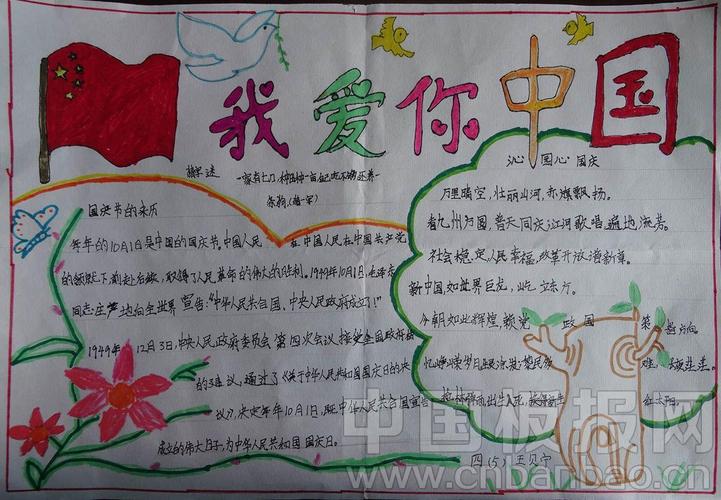 我爱你中国
猜字迷
沁园心 国庆
国庆节的来历
万里晴空，壮丽山河，赤旗飘扬。
每年的10月1日是中国的国庆节。中国人民
在中国人民在中国共产党
看九州方圆，普天同庆；江河歌唱，遍地流芳。
的领导下，前赴后继，取得了人民革命的伟大的胜利。1949年10月1日，毛泽东
社会稳定，人民幸福，改革开放谱新章。
同志庄严地向全世界宣告："中华人民共和国，中央人民政府成立了！"
新中国如世界巨虎，屹立东方。
今朝如此辉煌，赖党政国策指方向
1949年12月3日，中央人民政府委员会第四次会议接受全国政协
忆峥嵘岁月
的建议，通过了《关于中华人民共和国国庆日的决
议》，决定每年10月1日，即中华人民共和国宣告
出生入死
在太阳。
成立的伟大日子，为中华人民共和国国庆日。
四（5）王贝宁
中国板报网
www.cnbanbao.cn